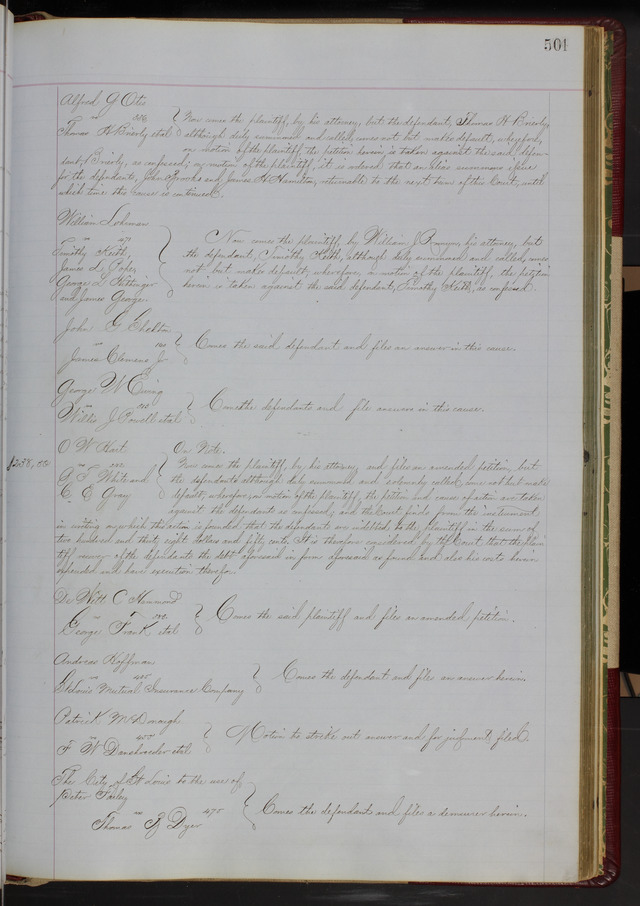 501
Alfred G Otis
vs
Thomas H Brierly et al
Now comes the plaintiff, by his attorney, but the defendant, Thomas H Brierly,
although duly summoned and called, comes not but makes default, wherefore,
on motion of the plaintiff, the petition herein is taken against the said defen-
dant, Brierly, as confessed; on motion of the plaintiff, it is ordered that an alias summons issue
for the defendants, John Brooks and James H Hamilton, returnable to the next term of this Court, until
which time the cause is continued.
William Lohman
vs 471
Timothy Keith,
James L
George L
and James George
Now comes the plaintiff, by William J his attorney, but
the defendant, Timothy Keith, although duly summoned and called, comes
not but makes default, wherefore, on motion of the plaintiff, the petition
herein is taken against the said defendant, Timothy Keith, as confessed.
John G Shelton
vs 101
James Clemens Jr
Comes the said defendant and files an answer in this cause.
George W Ewing
vs
Willis J Powell et al
Come the defendants and file answer in this cause.
$238,50
O W Hart
vs
F White and
C. E Gray
On Note.
Now comes the plaintiff, by his attorney, and files an amended petition, but
the defendants although duly summoned and solemnly called, come not but make
default, wherefore, on motion of the plaintiff, the petition and cause of action are taken
against the defendants as confessed; and the Court finds from the instrument
in writing on which this action is founded, that the defendants are indebted to the plaintiff in the sum of
two hundred and thirty eight dollars and fifty cents. It is therefore considered by the Court that the plain-
tiff recover of the defendants the debt aforesaid in form aforesaid so found and also his costs herein
expended and have execution therefor.
De Witt C Hammond
vs
George Frank et al
Comes the said plaintiff and files an amended petition.
Andreas Hoffman
vs 425
St Louis Mutual Insurance Company
Comes the defendant and files an answer herein.
Patrick McDonough
vs 455
F W et al
Motion to strike out answer and for judgment, filed.
The City of St Louis to the use of
Peter Farley
vs 475
Thomas B Dyer
Comes the defendant and files a demurrer herein.